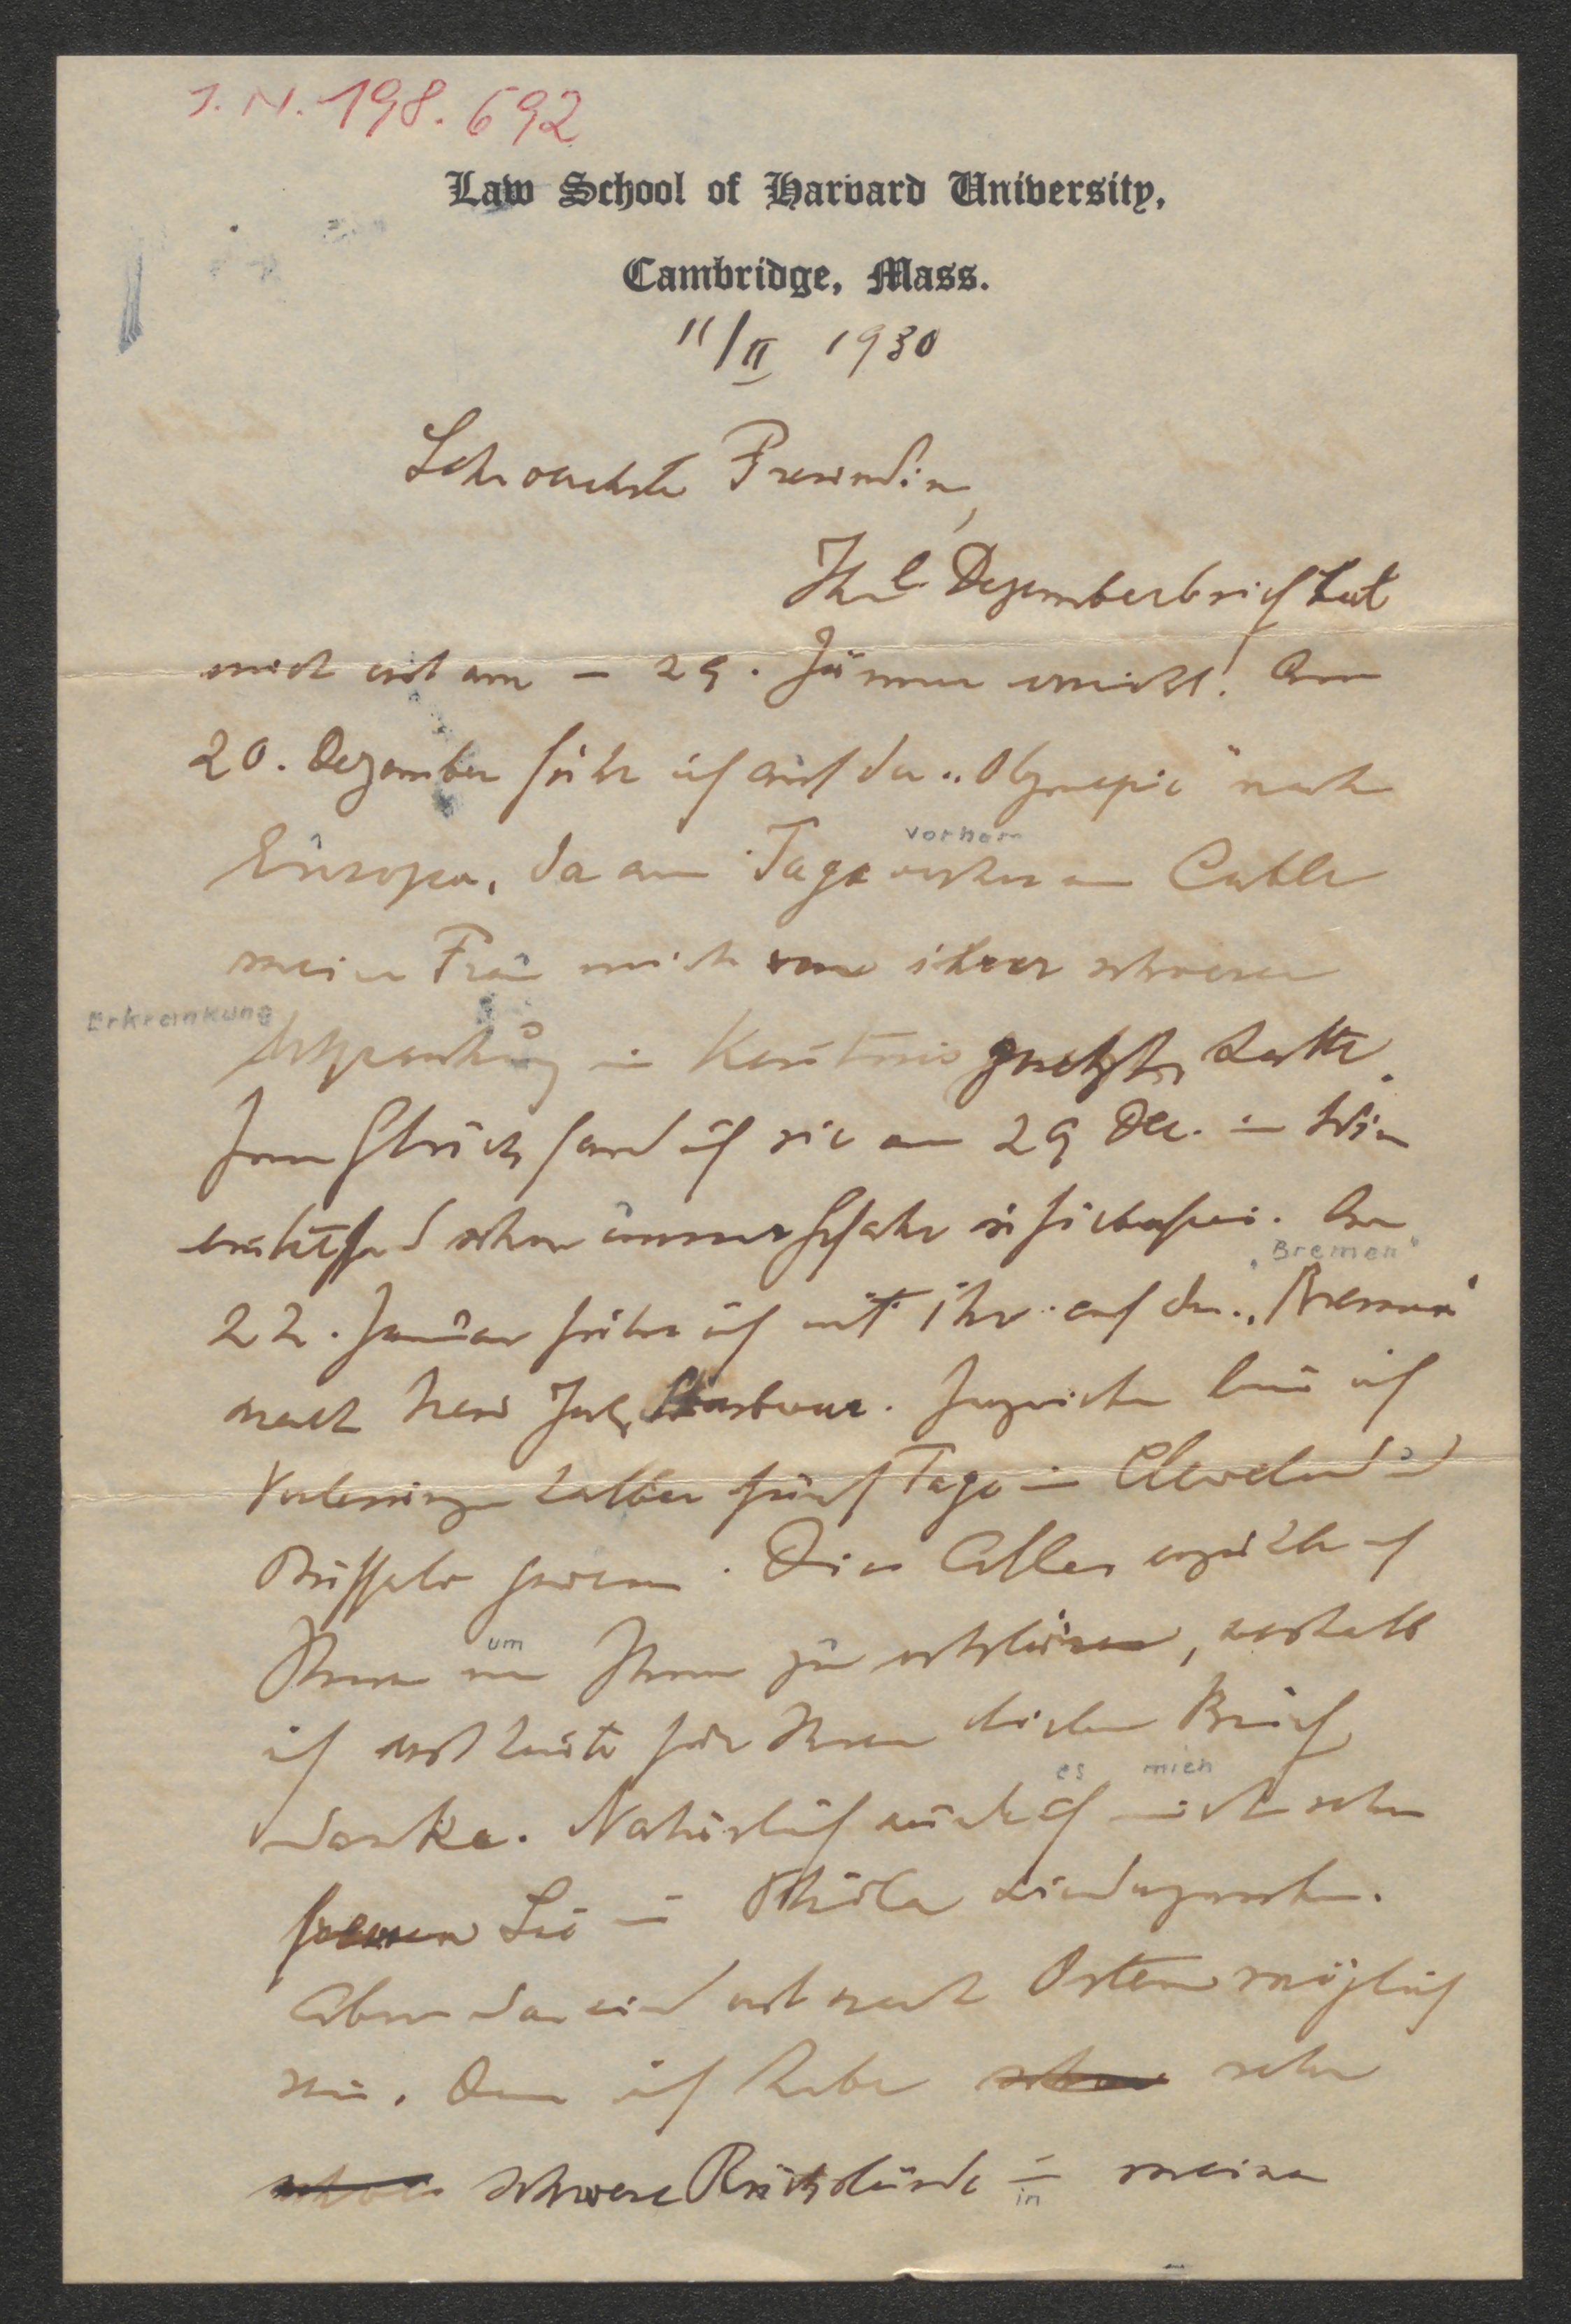 J. N. 198.692
Law School of Harvard University,
Cambridge, Mass.
11/II 1930
Sehr verehrte Freundin,
Ihr l. Dezemberbrief hat
mich erst am – 29. Jänner erreicht! Am
20. Dezember fuhr ich auf der „Olympic" nach
vorher
Europa, da am Tage vorher ein Cable
meiner Frau mich von ihrer schweren
Erkrankung
Erkrankung in Kenntnis gesetzt hatte.
Zum Glück fand ich sie am 29 Dec. in Wien
schon ausser Gefahr
„Bremen"
22. Januar fuhr ich mit ihr auf der „Bremen"
nach New York. Inzwischen bin ich
Vorlesungen halber fünf Tage in Cleveland und
Buffalo gewesen. Dies Alles erzähle ich
um
Ihnen um Ihnen zu erklären, weshalb
ich erst heute für Ihren lieben Brief
es mich
danke. Natürlich würde es mich sehr
freuen Sie in Phila wiederzusehen.
Aber das wird erst nach Ostern möglich
sein. Denn ich habe sehr
schwere Rückstände in meinen
in